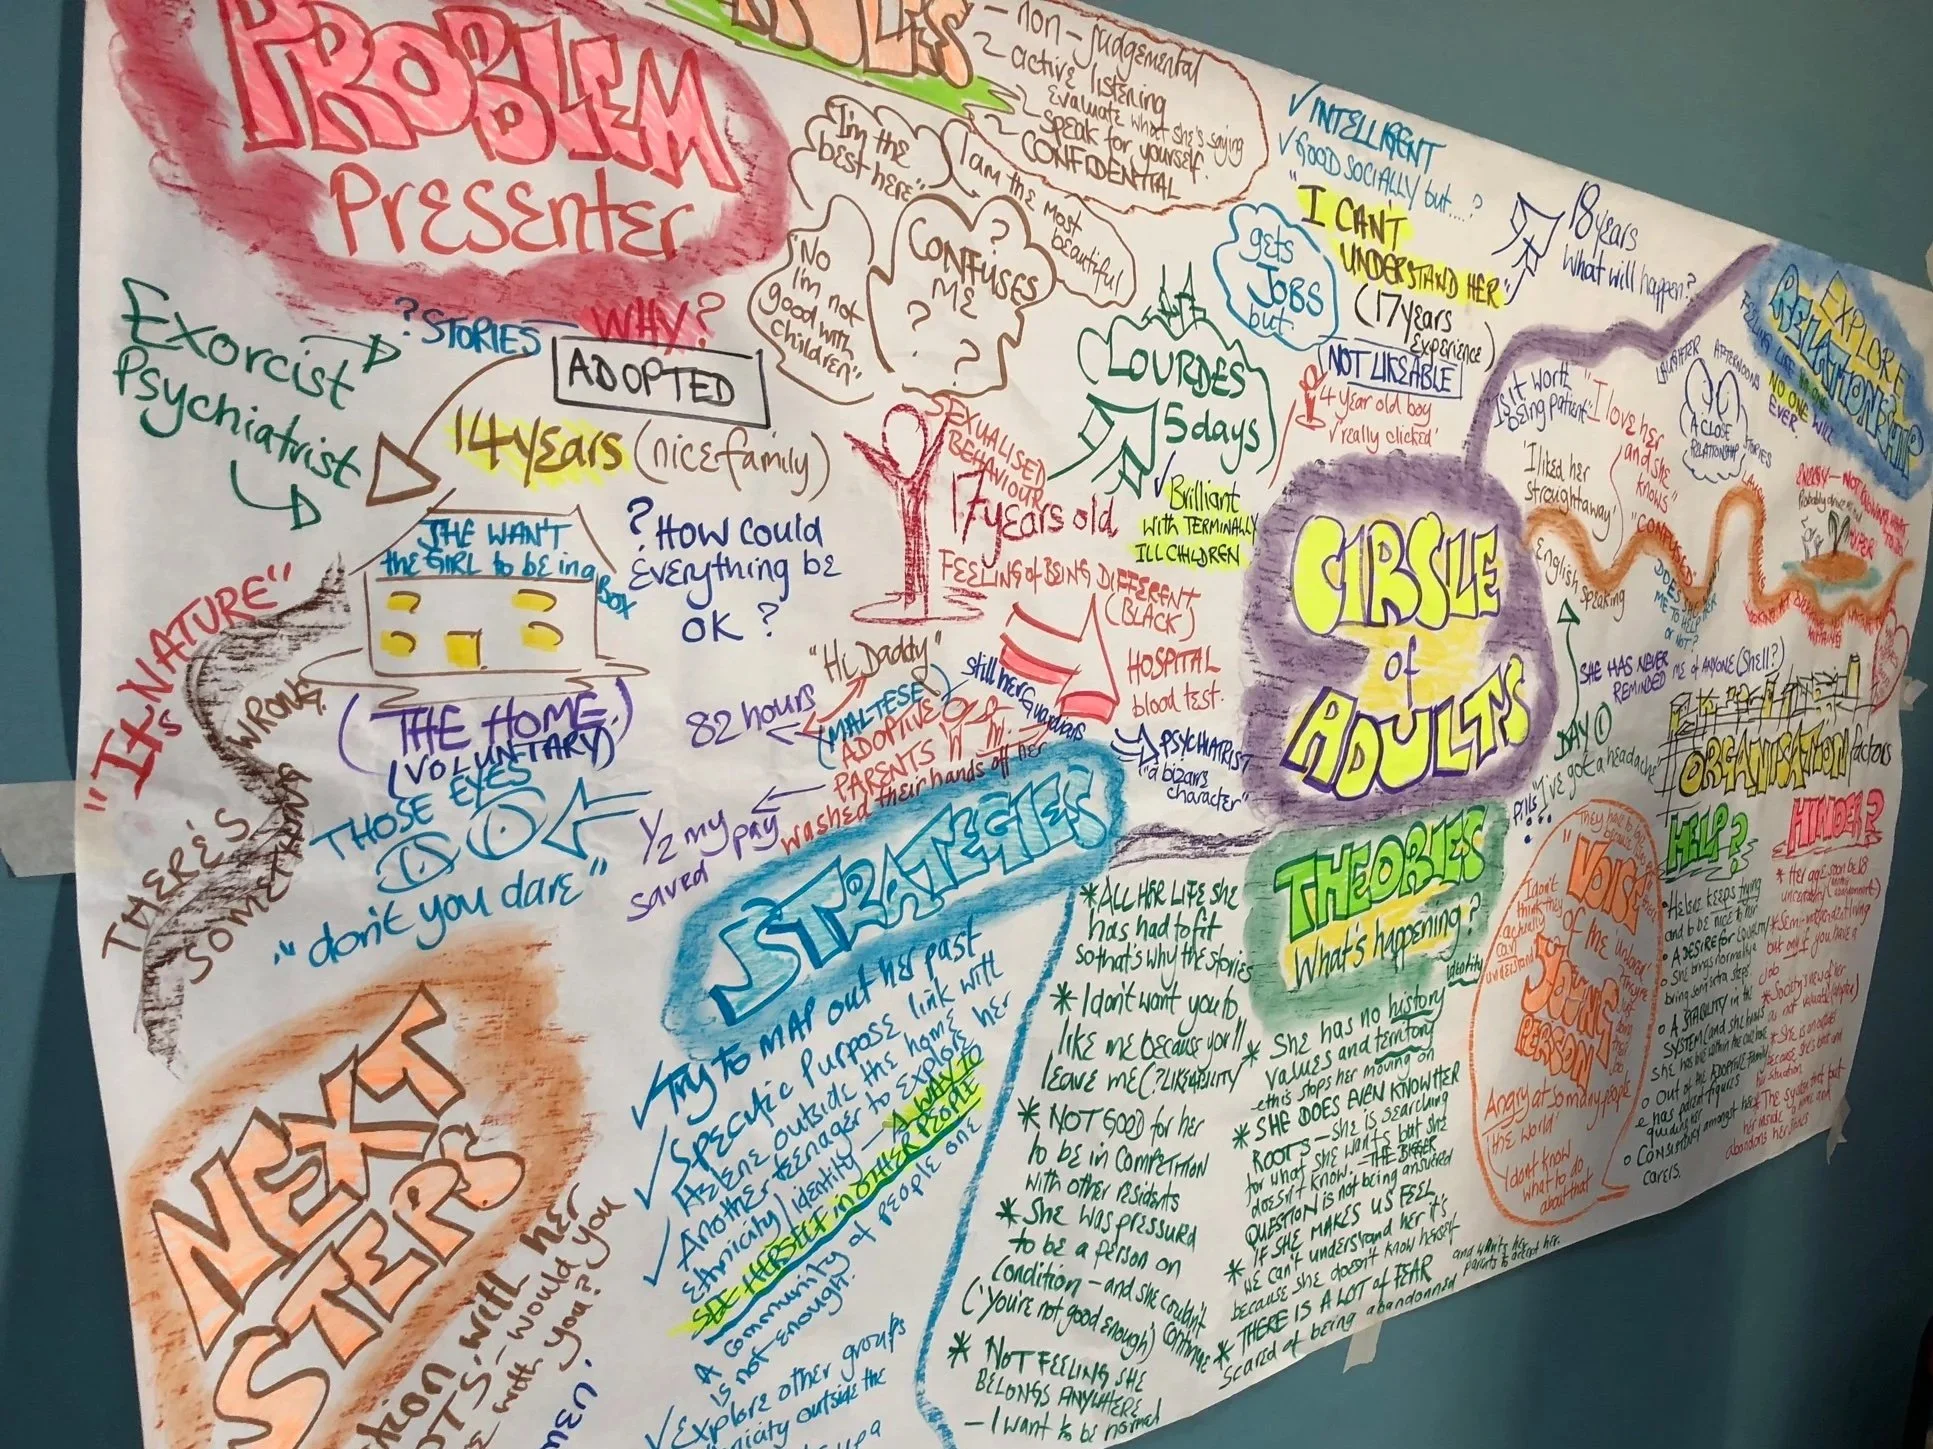 PROBLEM
Presenter
- non-judgemental
active listening
evaluate what she's saying
speak for yourself.
CONFIDENTIAL
"I'm the
best here"
I am the most
beautiful
"No
I'm not
good with
children"
?
CONFUSES
ME
?
?
✓ INTELLIGENT
✓ GOOD SOCIALLY but....?
"I CAN'T
UNDERSTAND HER"
(17 years
experience)
NOT LIKEABLE
18 years
What will happen?
gets
JOBS
but
4 year old boy
✓ 'really clicked'
(LOURDES
5 days)
✓ Brilliant
with TERMINALLY
ILL CHILDREN
Exorcist
Psychiatrist
? STORIES
WHY?
ADOPTED
14 years (nice family)
THE WAN'T
the GIRL to be in a
Box
? HOW could
Everything be
OK?
(THE HOME)
(VOLUNTARY)
"It's NATURE"
THERE'S
SOMETHING
WRONG
THOSE EYES
"don't you dare"
SEXUALISED
BEHAVIOUR
17 years old
FEELING of BEING DIFFERENT
(BLACK)
HOSPITAL
blood test.
"Hi Daddy"
82 hours
(MALTESE)
ADOPTIVE
PARENTS
washed their hands off her
still her guardians
1/2 my pay
saved
PSYCHIATRIST
"a bizars
character"
CIRSLE
of
ADULTS
EXPLORE
RELATIONSHIP
NO ONE WILL
EVER.
Is it worth
being patient
"I love her
and she
knows"
'I liked her
stroughtaway'
"CONFUSED"
English speaking
LAUGHTER
AFTERNOONS
A CLOSE
RELATIONSHIP
STORIES
DOES SHE
ME TO HELP HER
OR NOT?
SHE HAS NEVER
REMINDED ME of ANYONE (Shell?)
DAY 1
"I've got a headache"
Pills
ORGANISATION factors
HELP?
HINDER?
STRATEGIES
✓ Try to MAP out her past
✓ Specific Purpose link with
Helene outside the home
✓ Another teenager to explore her
Ethnicity/identity — A WAY TO
SEE HERSELF IN OTHER PEOPLE
A community of people one
is not enough.
✓ Explore other groups
outside the
* ALL HER LIFE she
has had to fit
so that's why the stories
* I don't want you to
like me because you'll
leave me (? LIKEABILITY
* NOT GOOD for her
to be in COMPETITION
with other residents
* She was pressured
to be a person on
Condition - and she couldn't
('You're not good enough') continue
* NOT FEELING SHE
BELONGS ANYWHERE
- I want to be normal
THEORIES
What's happening?
identity
* She has no history
values and territory
& this stops her moving on
* SHE DOES EVEN KNOW HER
ROOTS - she is searching
for what she wants but she
doesn't know. - THE BIGGER
QUESTION is not being answered
* IF SHE MAKES US FEEL
WE can't understand her it's
because she doesn't know herself
* THERE IS A LOT of FEAR
Scared of being abandonned
and wants her
parents to accept her.
VOISE
of the
YOUNG
PERSON
I don't
think they
actually
can
understand
Angry at so many people
/the world
'I don't know
what to do
about that'
• Helene keeps trying
and to be nice to her
• A STABILITY IN the
SYSTEM (and she knows
• Out of the ADOPTIVE Family
• Consistency amongst her
carers.
* Her age soon be 18
* Semi-independent living
but only if you have a
job
* The system that put
her inside a home and
abandons her
NEXT
STEPS
with her
- would you
with you?